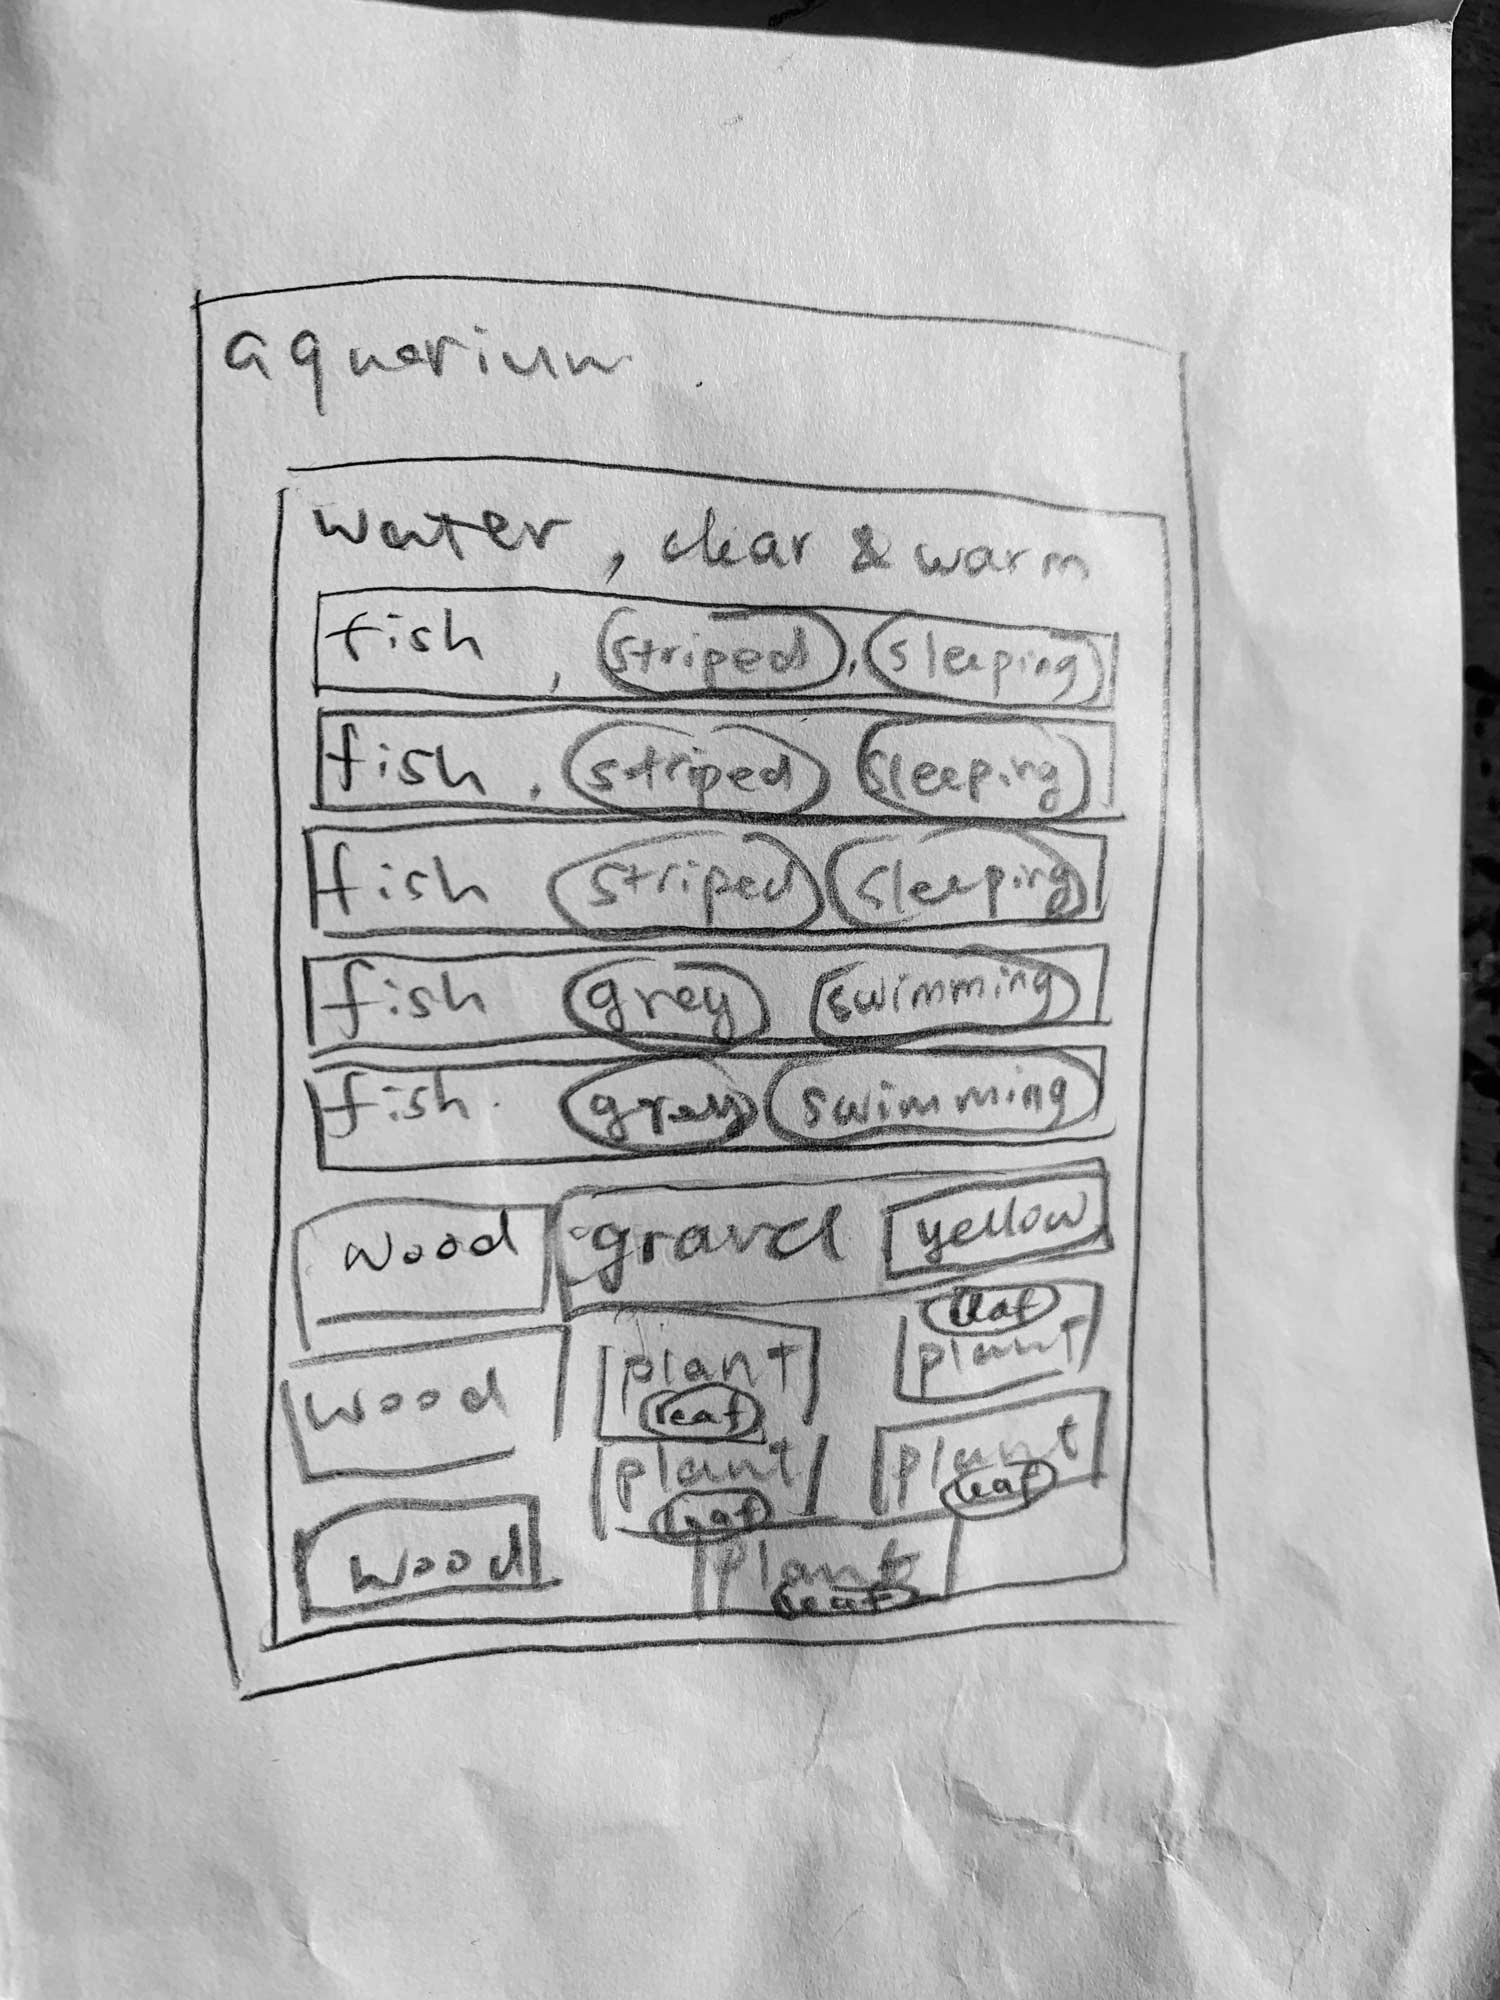 aquarium
water, clear & warm
fish, striped, sleeping
fish, striped sleeping
fish striped sleeping
fish grey swimming
fish. grey swimming
wood gravel yellow
leaf
plant plant
wood leaf
plant plant
leaf leaf
wood plant
leaf